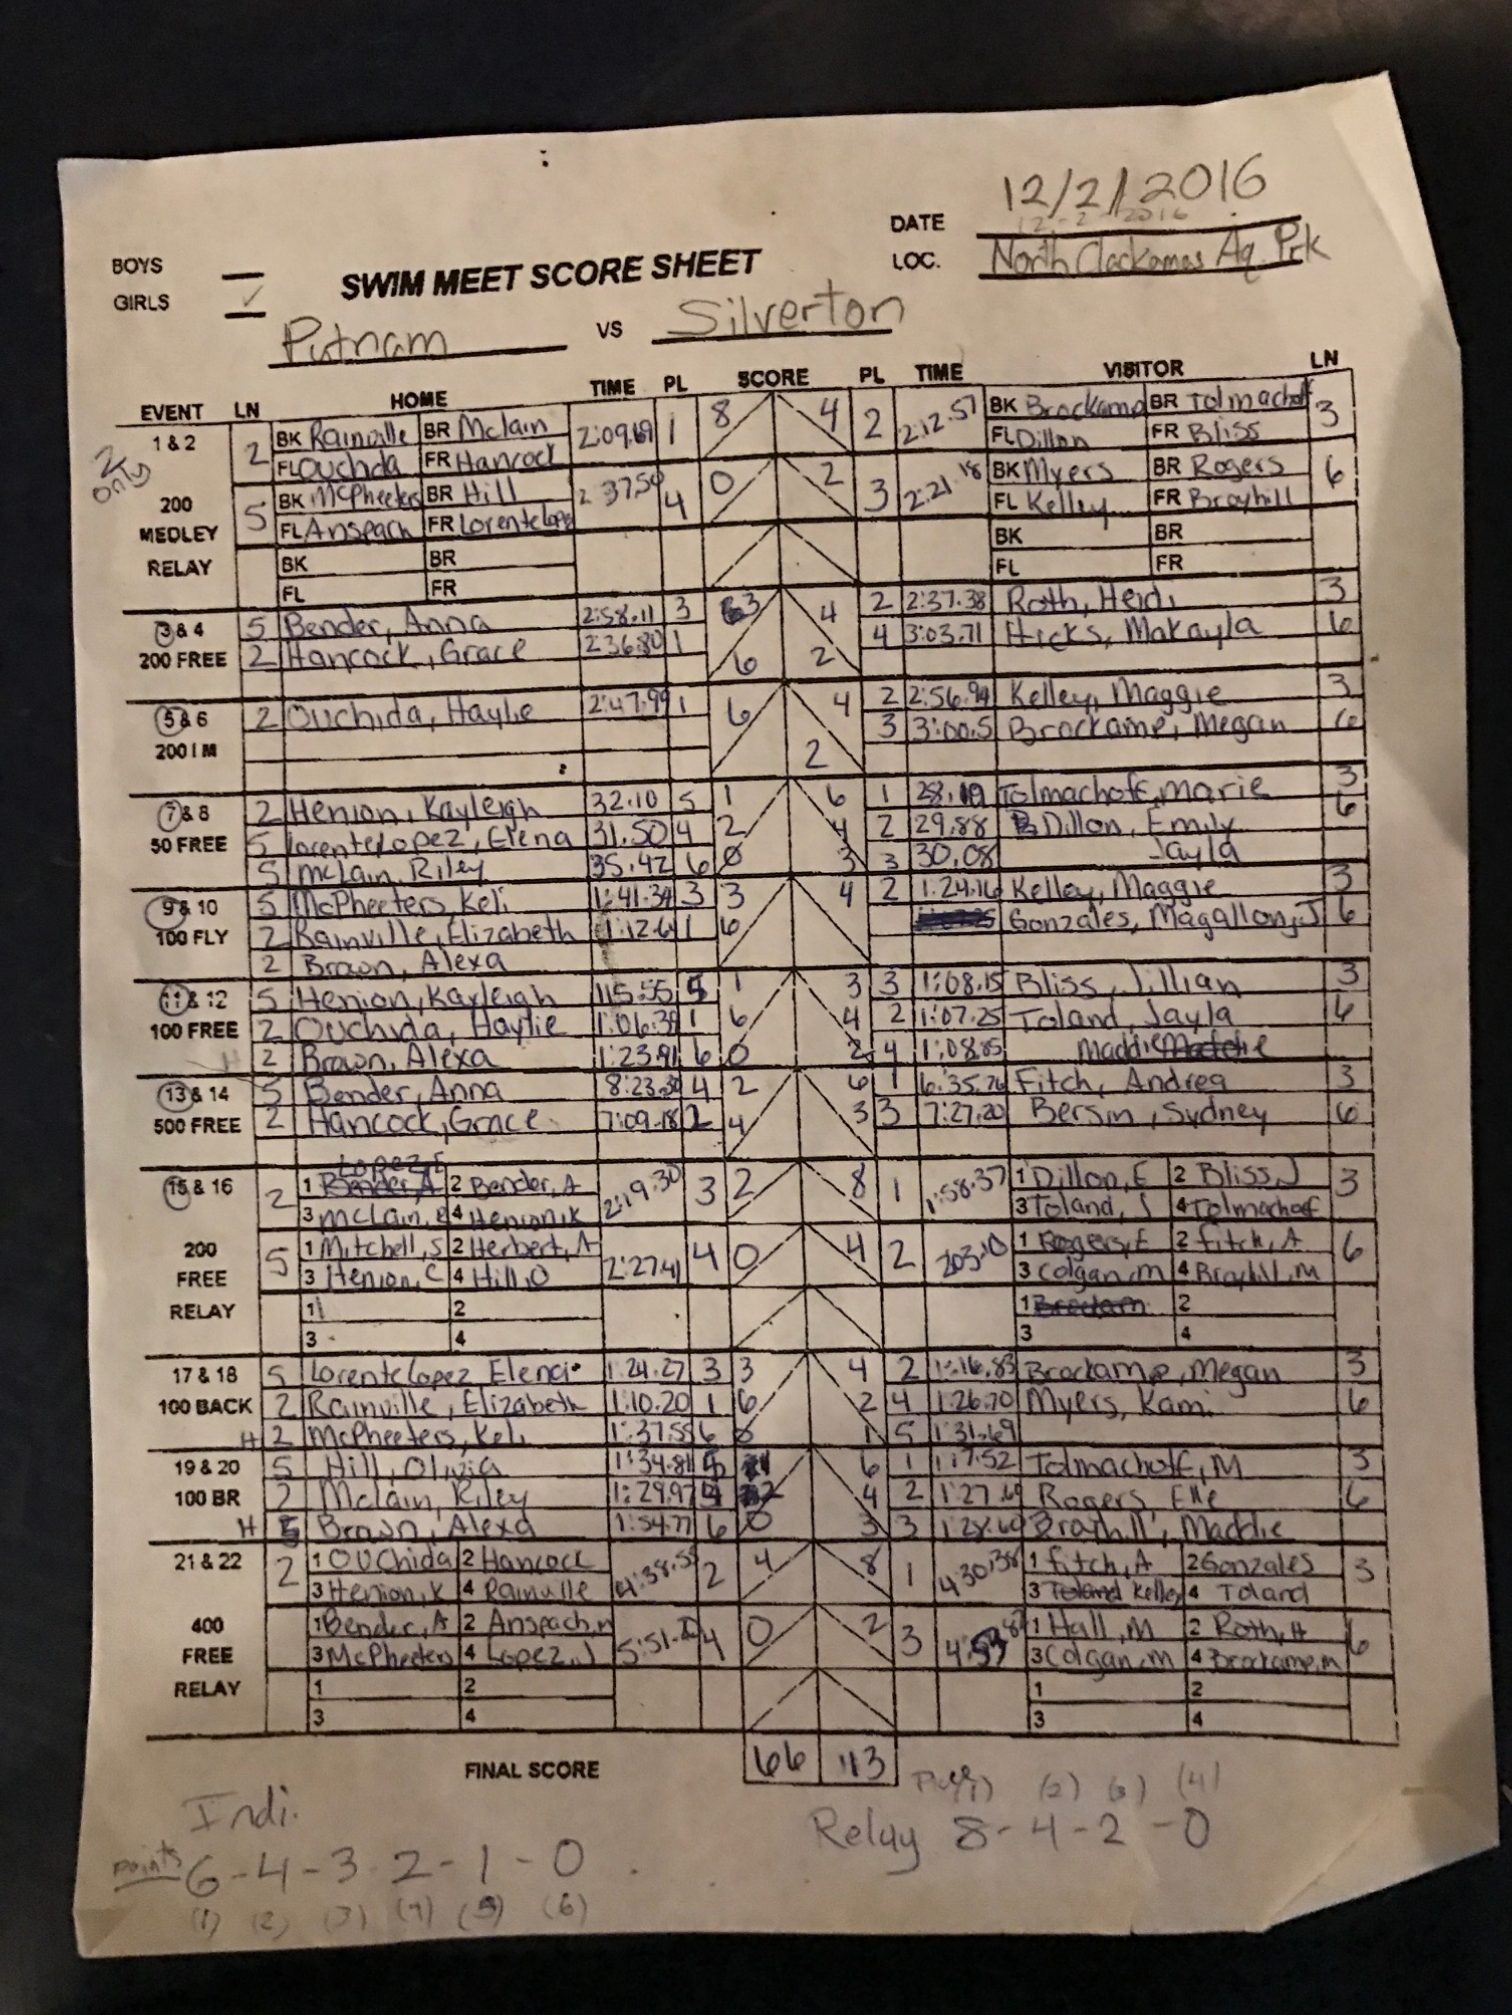 DATE 12/2/2016
12-2-2016
BOYS
LOC. North Clackamas Aq. Prk
SWIM MEET SCORE SHEET
GIRLS ✓
Putnam VS Silverton
EVENT LN HOME TIME PL SCORE PL TIME VISITOR LN
1 & 2 2 BK Rainville BR Mclain 2:09.69 1 8 4 2 2:12.57 BK Brockamp BR Tolmachoff 3
2 only FL Ouchida FR Hancock FL Dillon FR Bliss
200 5 BK McPheeters BR Hill 2:37.50 4 0 2 3 2:21.18 BK Myers BR Rogers 6
MEDLEY FL Anspach FR Lorentelopez FL Kelley FR Broyhill
RELAY BK BR BK BR
FL FR FL FR
3 & 4 5 Bender, Anna 2:58.11 3 3 4 2 2:37.38 Roth, Heidi 3
200 FREE 2 Hancock, Grace 2:36.80 1 6 2 4 3:03.71 Hicks, Makayla 6
5 & 6 2 Ouchida, Haylie 2:47.99 1 6 4 2 2:56.94 Kelley, Maggie 3
200 I M 2 3 3:00.5 Brockamp, Megan 6
7 & 8 2 Henion, Kayleigh 32.10 5 1 6 1 28.19 Tolmachoff, Marie 3
50 FREE 5 Lorentelopez, Elena 31.50 4 2 4 2 29.88 Dillon, Emily 6
5 McLain, Riley 35.42 6 0 3 3 30.08 Jayla
9 & 10 5 McPheeters, Keli 1:41.34 3 3 4 2 1:24.16 Kelley, Maggie 3
100 FLY 2 Rainville, Elizabeth 1:12.61 1 6 Gonzales, Magallon, J 6
2 Brown, Alexa
11 & 12 5 Henion, Kayleigh 115.55 5 1 3 3 1:08.15 Bliss, Jillian 3
100 FREE 2 Ouchida, Haylie 1:06.39 1 6 4 2 1:07.25 Toland, Jayla 6
H 2 Brown, Alexa 1:23.91 6 0 2 4 1:08.85 Maddie
13 & 14 5 Bender, Anna 8:23.30 4 2 6 1 6:35.26 Fitch, Andrea 3
500 FREE 2 Hancock, Grace 7:09.18 2 4 3 3 7:27.20 Bersin, Sydney 6
Lopez, E
15 & 16 2 1 Bender, A 2 Bender, A 2:19.30 3 2 8 1 1:58.37 1 Dillon, E 2 Bliss, J 3
3 McLain, R 4 Henion, K 3 Toland, J 4 Tolmachoff
200 5 1 Mitchell, S 2 Herbert, A 2:27.41 4 0 4 2 203.10 1 Rogers, E 2 Fitch, A 6
FREE 3 Henion, C 4 Hill, O 3 Colgan, M 4 Broyhill, M
RELAY 1 2 1 Brockam 2
3 4 3 4
17 & 18 5 Lorentelopez, Elena 1:24.27 3 3 4 2 1:16.83 Brockamp, Megan 3
100 BACK 2 Rainville, Elizabeth 1:10.20 1 6 2 4 1:26.70 Myers, Kami 6
H 2 McPheeters, Keli 1:37.55 6 0 1 5 1:31.69
19 & 20 5 Hill, Olivia 1:34.81 5 1 6 1 1:17.52 Tolmachoff, M 3
100 BR 2 Mclain, Riley 1:29.97 4 2 4 2 1:27.69 Rogers, Elle 6
H 5 Brown, Alexa 1:54.77 6 0 3 3 1:28.60 Brayhill, Maddie
21 & 22 2 1 Ouchida 2 Hancock 4:38.55 2 4 8 1 4:30.38 1 Fitch, A 2 Gonzales 3
3 Henion, K 4 Rainville 3 Toland Kelley 4 Toland
400 1 Bender, A 2 Anspach, M 5:51 4 0 2 3 4:53 1 Hall, M 2 Roth, H 6
FREE 3 McPheeters 4 Lopez, J 3 Colgan, M 4 Brockamp, M
RELAY 1 2 1 2
3 4 3 4
FINAL SCORE 66 113
(1) (2) (3) (4)
Indi. Relay 8-4-2-0
points 6-4-3-2-1-0
(1) (2) (3) (4) (5) (6)